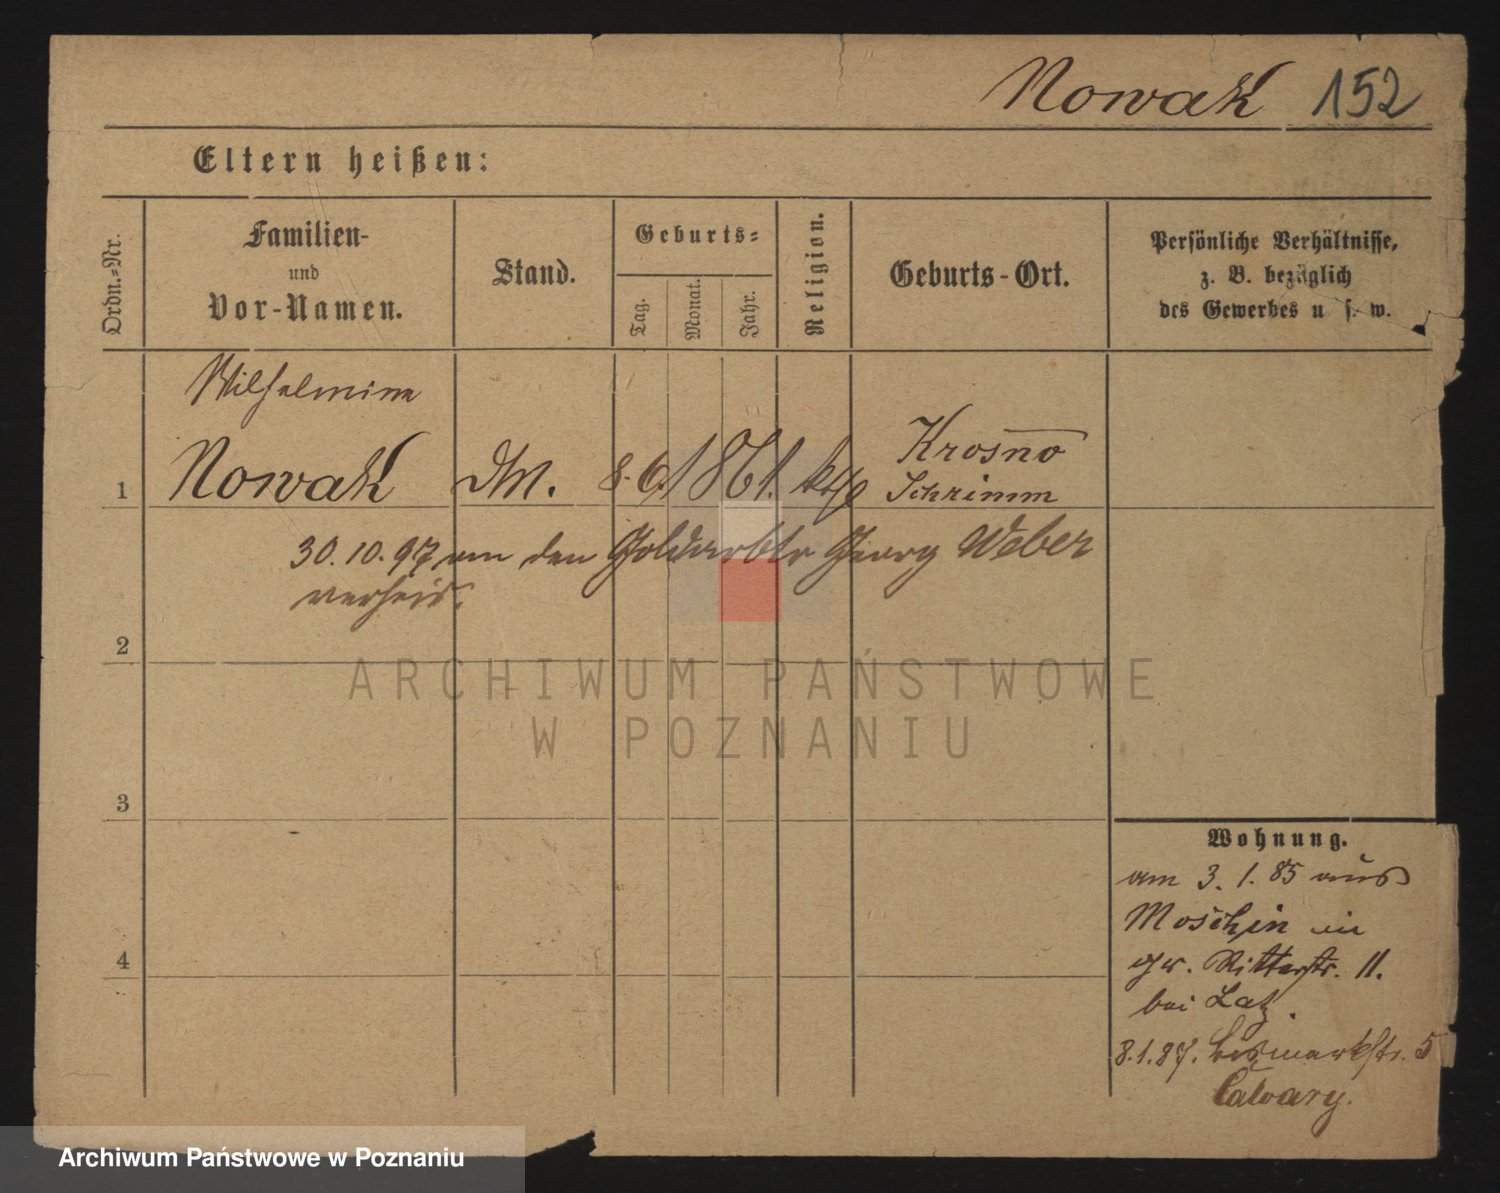 Nowak 152
Eltern heißen:
Ordn.=Nr.
Familien-
und
Vor-Namen.
Stand.
Geburts=
Tag.
Monat.
Jahr.
Religion.
Geburts-Ort.
Persönliche Verhältnisse,
z. B. bezüglich
des Gewerbes u. s. w.
Wilhelmine
1 Nowak dM. 8. 6. 1861. kath Krosno
Schrimm
30.10.97 an den Goldarbtr Georg Weber
verheir.
2
ARCHIWUM PAŃSTWOWE
W POZNANIU
3
4
Wohnung.
am 3. 1. 85 aus
Moschin in
gr. Ritterstr. 11.
bei Latz.
8.1.87. Bismarkstr. 5
Calvary.
Archiwum Państwowe w Poznaniu